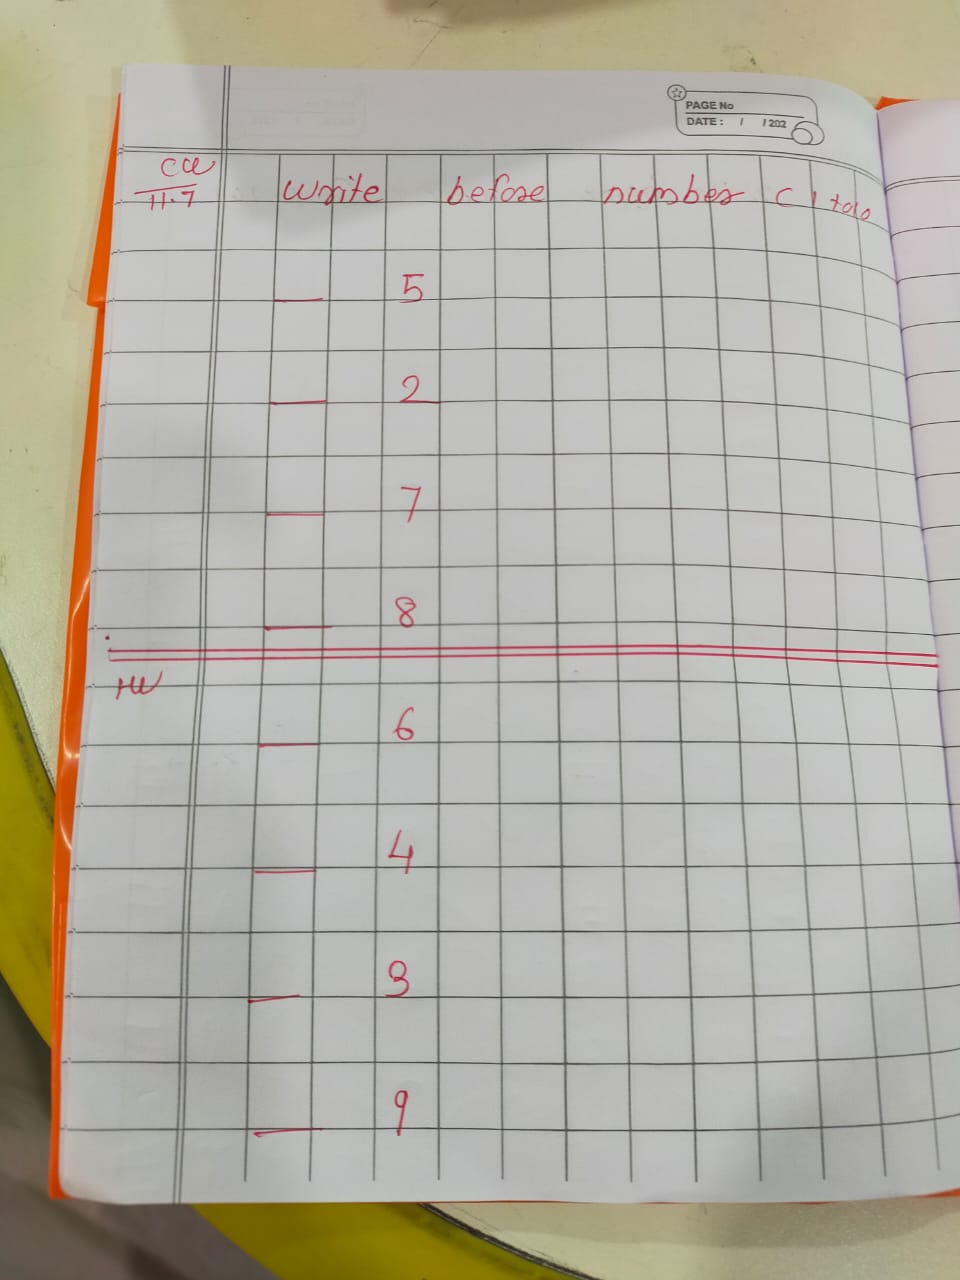 PAGE No
DATE : / / 202
CW
11.7
Write before number ( 1 to
__ 5
__ 2
__ 7
__ 8
HW
__ 6
__ 4
__ 3
__ 9